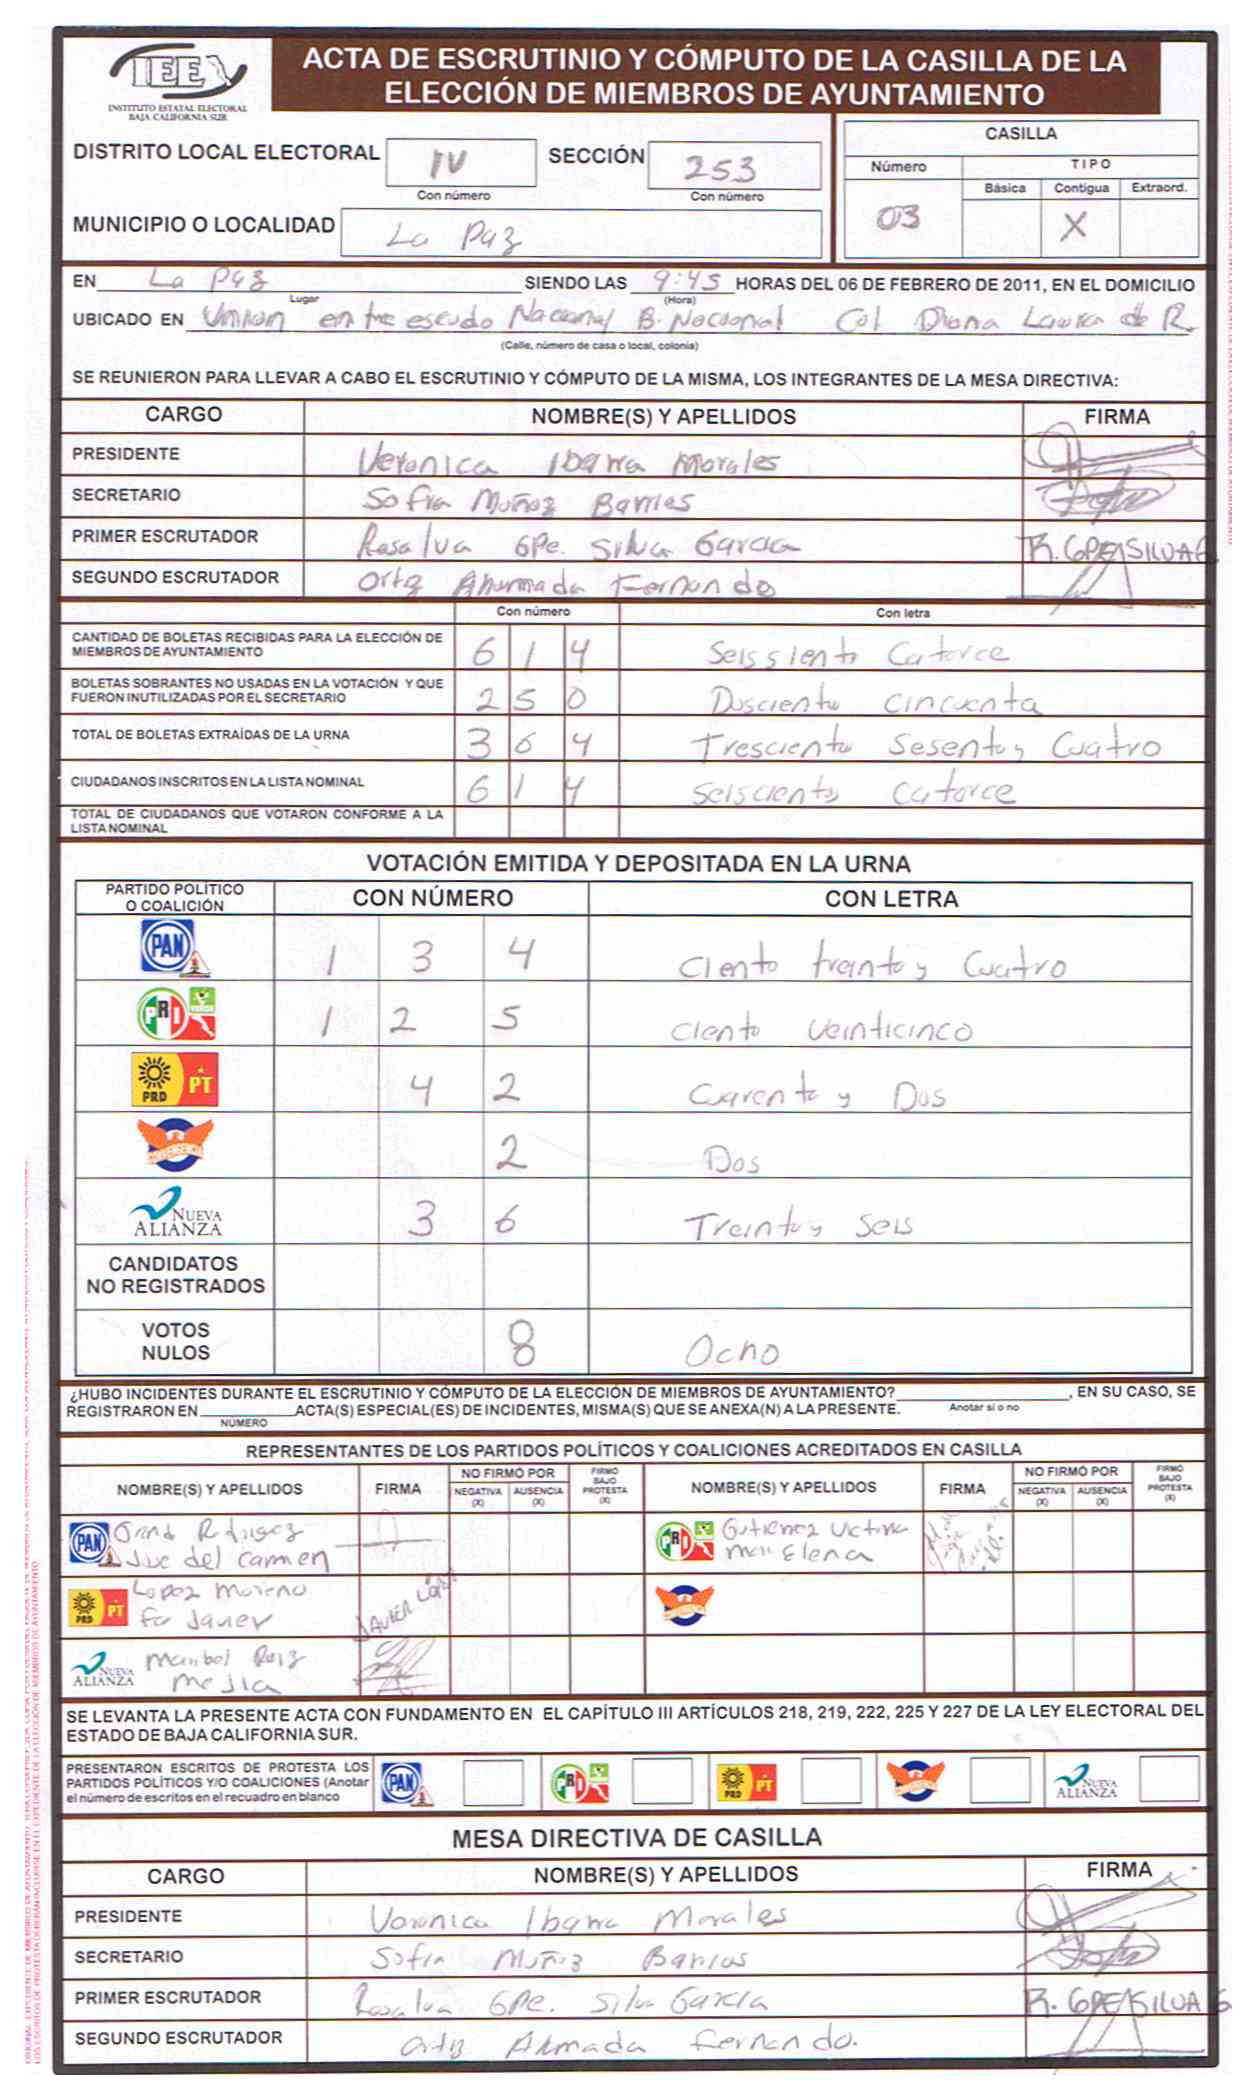 IEE
INSTITUTO ESTATAL ELECTORAL
BAJA CALIFORNIA SUR
ACTA DE ESCRUTINIO Y CÓMPUTO DE LA CASILLA DE LA
ELECCIÓN DE MIEMBROS DE AYUNTAMIENTO
DISTRITO LOCAL ELECTORAL IV SECCIÓN 253
Con número Con número
MUNICIPIO O LOCALIDAD La Paz
CASILLA
Número TIPO
Básica Contigua Extraord.
03 X
EN La Paz SIENDO LAS 9:45 HORAS DEL 06 DE FEBRERO DE 2011, EN EL DOMICILIO
Lugar (Hora)
UBICADO EN Union entre escudo Nacional B. Nacional Col Diana Laura de R.
(Calle, número de casa o local, colonia)
SE REUNIERON PARA LLEVAR A CABO EL ESCRUTINIO Y CÓMPUTO DE LA MISMA, LOS INTEGRANTES DE LA MESA DIRECTIVA:
CARGO NOMBRE(S) Y APELLIDOS FIRMA
PRESIDENTE Veronica Ibarra Morales
SECRETARIO Sofia Muñoz Barrios
PRIMER ESCRUTADOR Rosalva Gpe. Silva Garcia R. GPE SILVA G
SEGUNDO ESCRUTADOR Ortiz Ahumada Fernando
Con número Con letra
CANTIDAD DE BOLETAS RECIBIDAS PARA LA ELECCIÓN DE
MIEMBROS DE AYUNTAMIENTO 6 1 4 Seissiento Catorce
BOLETAS SOBRANTES NO USADAS EN LA VOTACIÓN Y QUE
FUERON INUTILIZADAS POR EL SECRETARIO 2 5 0 Dusciento Cincuenta
TOTAL DE BOLETAS EXTRAÍDAS DE LA URNA 3 6 4 Tresciento Sesenta y Cuatro
CIUDADANOS INSCRITOS EN LA LISTA NOMINAL 6 1 4 Seisciento Catorce
TOTAL DE CIUDADANOS QUE VOTARON CONFORME A LA
LISTA NOMINAL
VOTACIÓN EMITIDA Y DEPOSITADA EN LA URNA
PARTIDO POLÍTICO
O COALICIÓN CON NÚMERO CON LETRA
PAN 1 3 4 Ciento treinta y Cuatro
PRI 1 2 5 Ciento Veinticinco
PRD PT 4 2 Cuarenta y Dos
CONVERGENCIA 2 Dos
NUEVA ALIANZA 3 6 Treinta y Seis
CANDIDATOS
NO REGISTRADOS
VOTOS
NULOS 8 Ocho
¿HUBO INCIDENTES DURANTE EL ESCRUTINIO Y CÓMPUTO DE LA ELECCIÓN DE MIEMBROS DE AYUNTAMIENTO? , EN SU CASO, SE
REGISTRARON EN ACTA(S) ESPECIAL(ES) DE INCIDENTES, MISMA(S) QUE SE ANEXA(N) A LA PRESENTE. Anotar sí o no
NÚMERO
REPRESENTANTES DE LOS PARTIDOS POLÍTICOS Y COALICIONES ACREDITADOS EN CASILLA
NOMBRE(S) Y APELLIDOS FIRMA NO FIRMÓ POR NEGATIVA (X) AUSENCIA (X) FIRMÓ BAJO PROTESTA (X) NOMBRE(S) Y APELLIDOS FIRMA NO FIRMÓ POR NEGATIVA (X) AUSENCIA (X) FIRMÓ BAJO PROTESTA (X)
PAN del Carmen
PRI Gutierrez Elena
PRD PT Lopez Moreno
Javier JAVIER
NUEVA ALIANZA Maribel Ruiz
Mejia
SE LEVANTA LA PRESENTE ACTA CON FUNDAMENTO EN EL CAPÍTULO III ARTÍCULOS 218, 219, 222, 225 Y 227 DE LA LEY ELECTORAL DEL
ESTADO DE BAJA CALIFORNIA SUR.
PRESENTARON ESCRITOS DE PROTESTA LOS
PARTIDOS POLÍTICOS Y/O COALICIONES (Anotar
el número de escritos en el recuadro en blanco
PAN PRI PRD PT NUEVA ALIANZA
MESA DIRECTIVA DE CASILLA
CARGO NOMBRE(S) Y APELLIDOS FIRMA
PRESIDENTE Veronica Ibarra Morales
SECRETARIO Sofia Muñiz Barrios
PRIMER ESCRUTADOR Rosalva Gpe. Silva Garcia R. GPE SILVA G
SEGUNDO ESCRUTADOR Ortiz Ahumada Fernando.